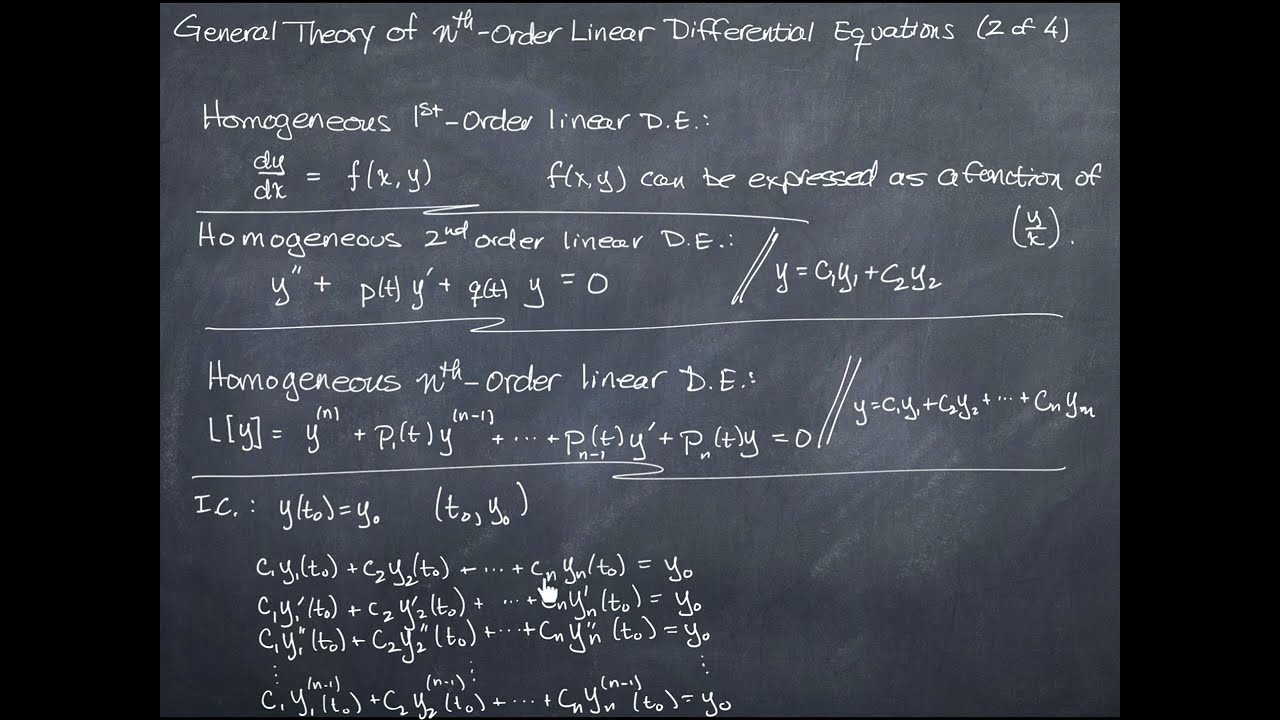 General Theory of nth-Order Linear Differential Equations (2 of 4)
Homogeneous 1st-Order linear D.E.:
dy/dx = f(x,y) f(x,y) can be expressed as a function of (y/x).
Homogeneous 2nd order linear D.E.:
y'' + p(t) y' + q(t) y = 0 // y = c₁y₁ + c₂y₂
Homogeneous nth-order linear D.E.:
L[y] = y⁽ⁿ⁾ + p₁(t) y⁽ⁿ⁻¹⁾ + ⋯ + pₙ₋₁(t) y' + pₙ(t) y = 0 // y = c₁y₁ + c₂y₂ + ⋯ + cₙyₘ
I.C.: y(t₀) = y₀ (t₀, y₀)
c₁y₁(t₀) + c₂y₂(t₀) + ⋯ + cₙyₙ(t₀) = y₀
c₁y₁'(t₀) + c₂y₂'(t₀) + ⋯ + cₙyₙ'(t₀) = y₀
c₁y₁''(t₀) + c₂y₂''(t₀) + ⋯ + cₙyₙ''(t₀) = y₀
⋮ ⋮ ⋮
c₁y₁⁽ⁿ⁻¹⁾(t₀) + c₂y₂⁽ⁿ⁻¹⁾(t₀) + ⋯ + cₙyₙ⁽ⁿ⁻¹⁾(t₀) = y₀